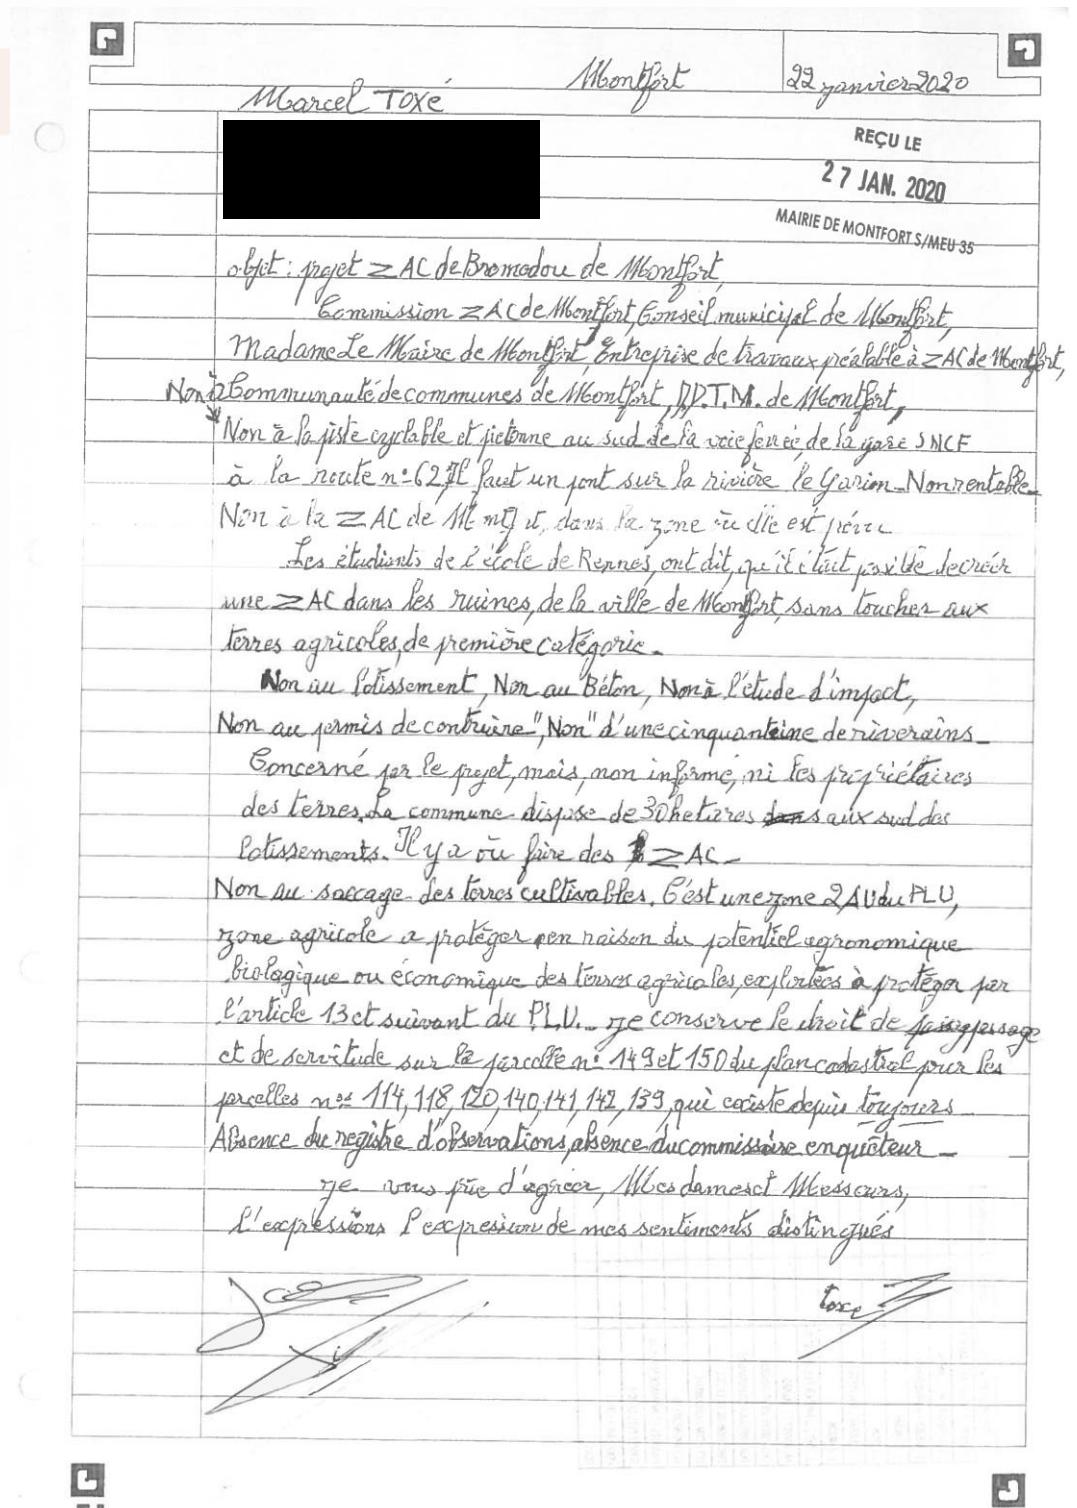 Montfort 22 janvier 2020
Marcel TOXÉ
REÇU LE
27 JAN. 2020
MAIRIE DE MONTFORT S/MEU 35
objet : projet ZAC de Bromedou de Montfort,
Commission ZAC de Montfort, Conseil municipal de Montfort,
Madame Le Maire de Montfort, Entreprise de travaux préalable à ZAC de Montfort,
Non à Communauté de communes de Montfort, D.D.T.M. de Montfort,
Non à la piste cyclable et pietonne au sud de la voie ferrée, de la gare SNCF
à la route n° 62 Il faut un pont sur la rivière le Garun - Non rentable -
Non à la ZAC de Montfort, dans la zone où elle est prévu
Les étudiants de l'école de Rennes, ont dit, qu'il était possible de créer
une ZAC dans les ruines, de la ville de Montfort, sans toucher aux
terres agricoles, de première catégorie -
Non au lotissement, Non au Béton, Non à l'étude d'impact,
Non au permis de contruire", Non" d'une cinquantaine de riverains -
Concerné par le projet, mais, non informé, ni les propriétaires
des terres. La commune dispose de 30 hetares aux sud des
lotissements. Il y a où faire des ZAC -
Non au saccage des terres cultivables. C'est une zone 2AU du PLU,
zone agricole a protéger en raison du potentiel agronomique
biologique ou économique des terres agricoles, exploitées à protéger par
l'article 13 et suivant du P.L.U. - je conserve le droit de passage
et de servitude sur la parcelle n° 149 et 150 du plan cadastral pour les
parcelles nos 114, 118, 120, 140, 141, 142, 139, qui existe depuis toujours
Absence du registre d'observations, absence du commissaire enquêteur -
je vous prie d'agréer, Mesdames et Messeurs,
l'expressions l'expression de mes sentiments distingués
toxe